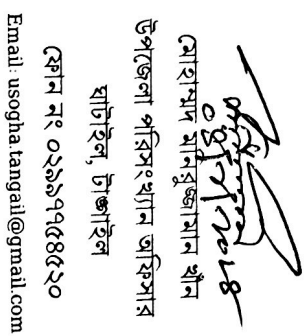 মোহাম্মদ মনিরুজ্জামান খাঁন
উপজেলা পরিসংখ্যান অফিসার
ঘাটাইল, টাঙ্গাইল
ফোন নং ০২৯৯৭৭৫৪৫২০
Email: usogha.tangail@gmail.com